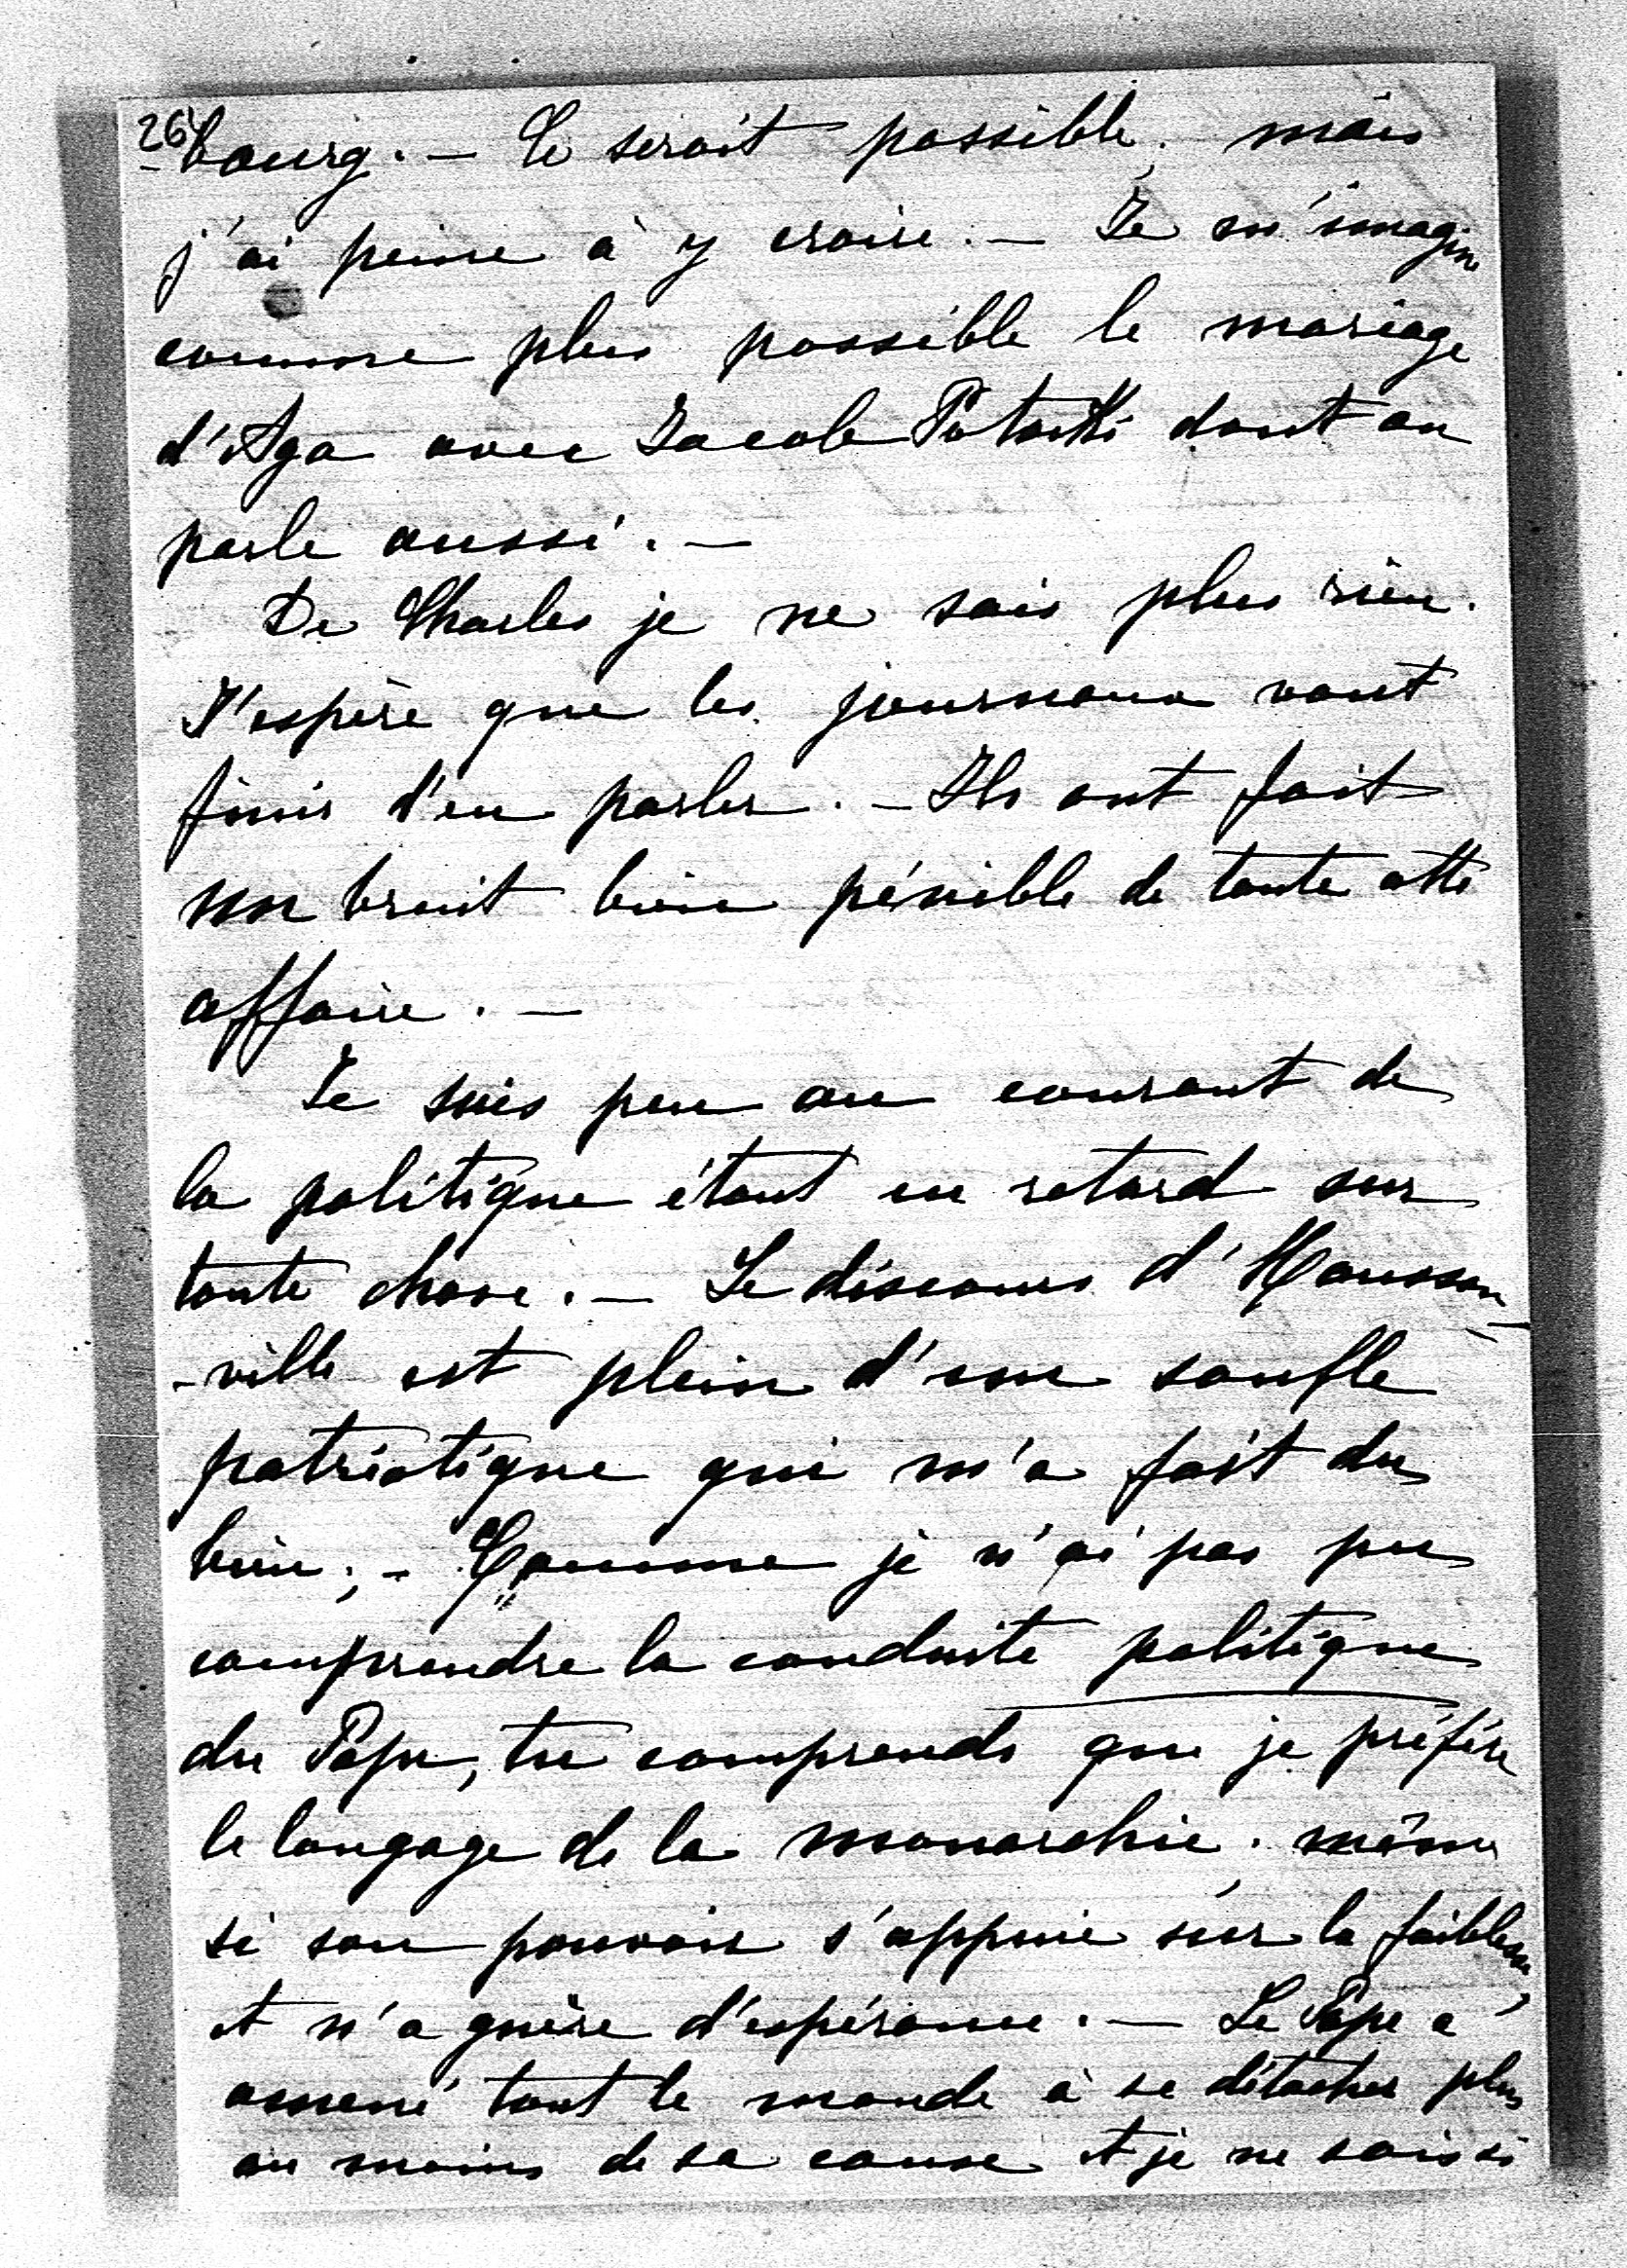 26
-bourg. — Ce serait possible, mais
j'ai peine à y croire. — Je m'imagine
comme plus possible le mariage
d'Aga avec Jacob Potocki dont on
parle aussi. —
De Charles je ne sais plus rien.
J'espère que les journaux vont
finir d'en parler. — Ils ont fait
un bruit bien pénible de toute cette
affaire. —
Je suis peu au courant de
la politique étant en retard sur
toute chose. — Le discours d'Hausson-
-ville est plein d'un soufle
patriotique qui m'a fait du
bien; - Comme je n'ai pas pu
comprendre la conduite politique
du Pape, tu comprends que je préfère
le langage de la monarchie, même
si son pouvoir s'appuie sur la faiblesse,
et n'a guère d'espérance. — Le Pape a
amené tout le monde à se détacher plus
ou moins de sa cause et je ne sais si